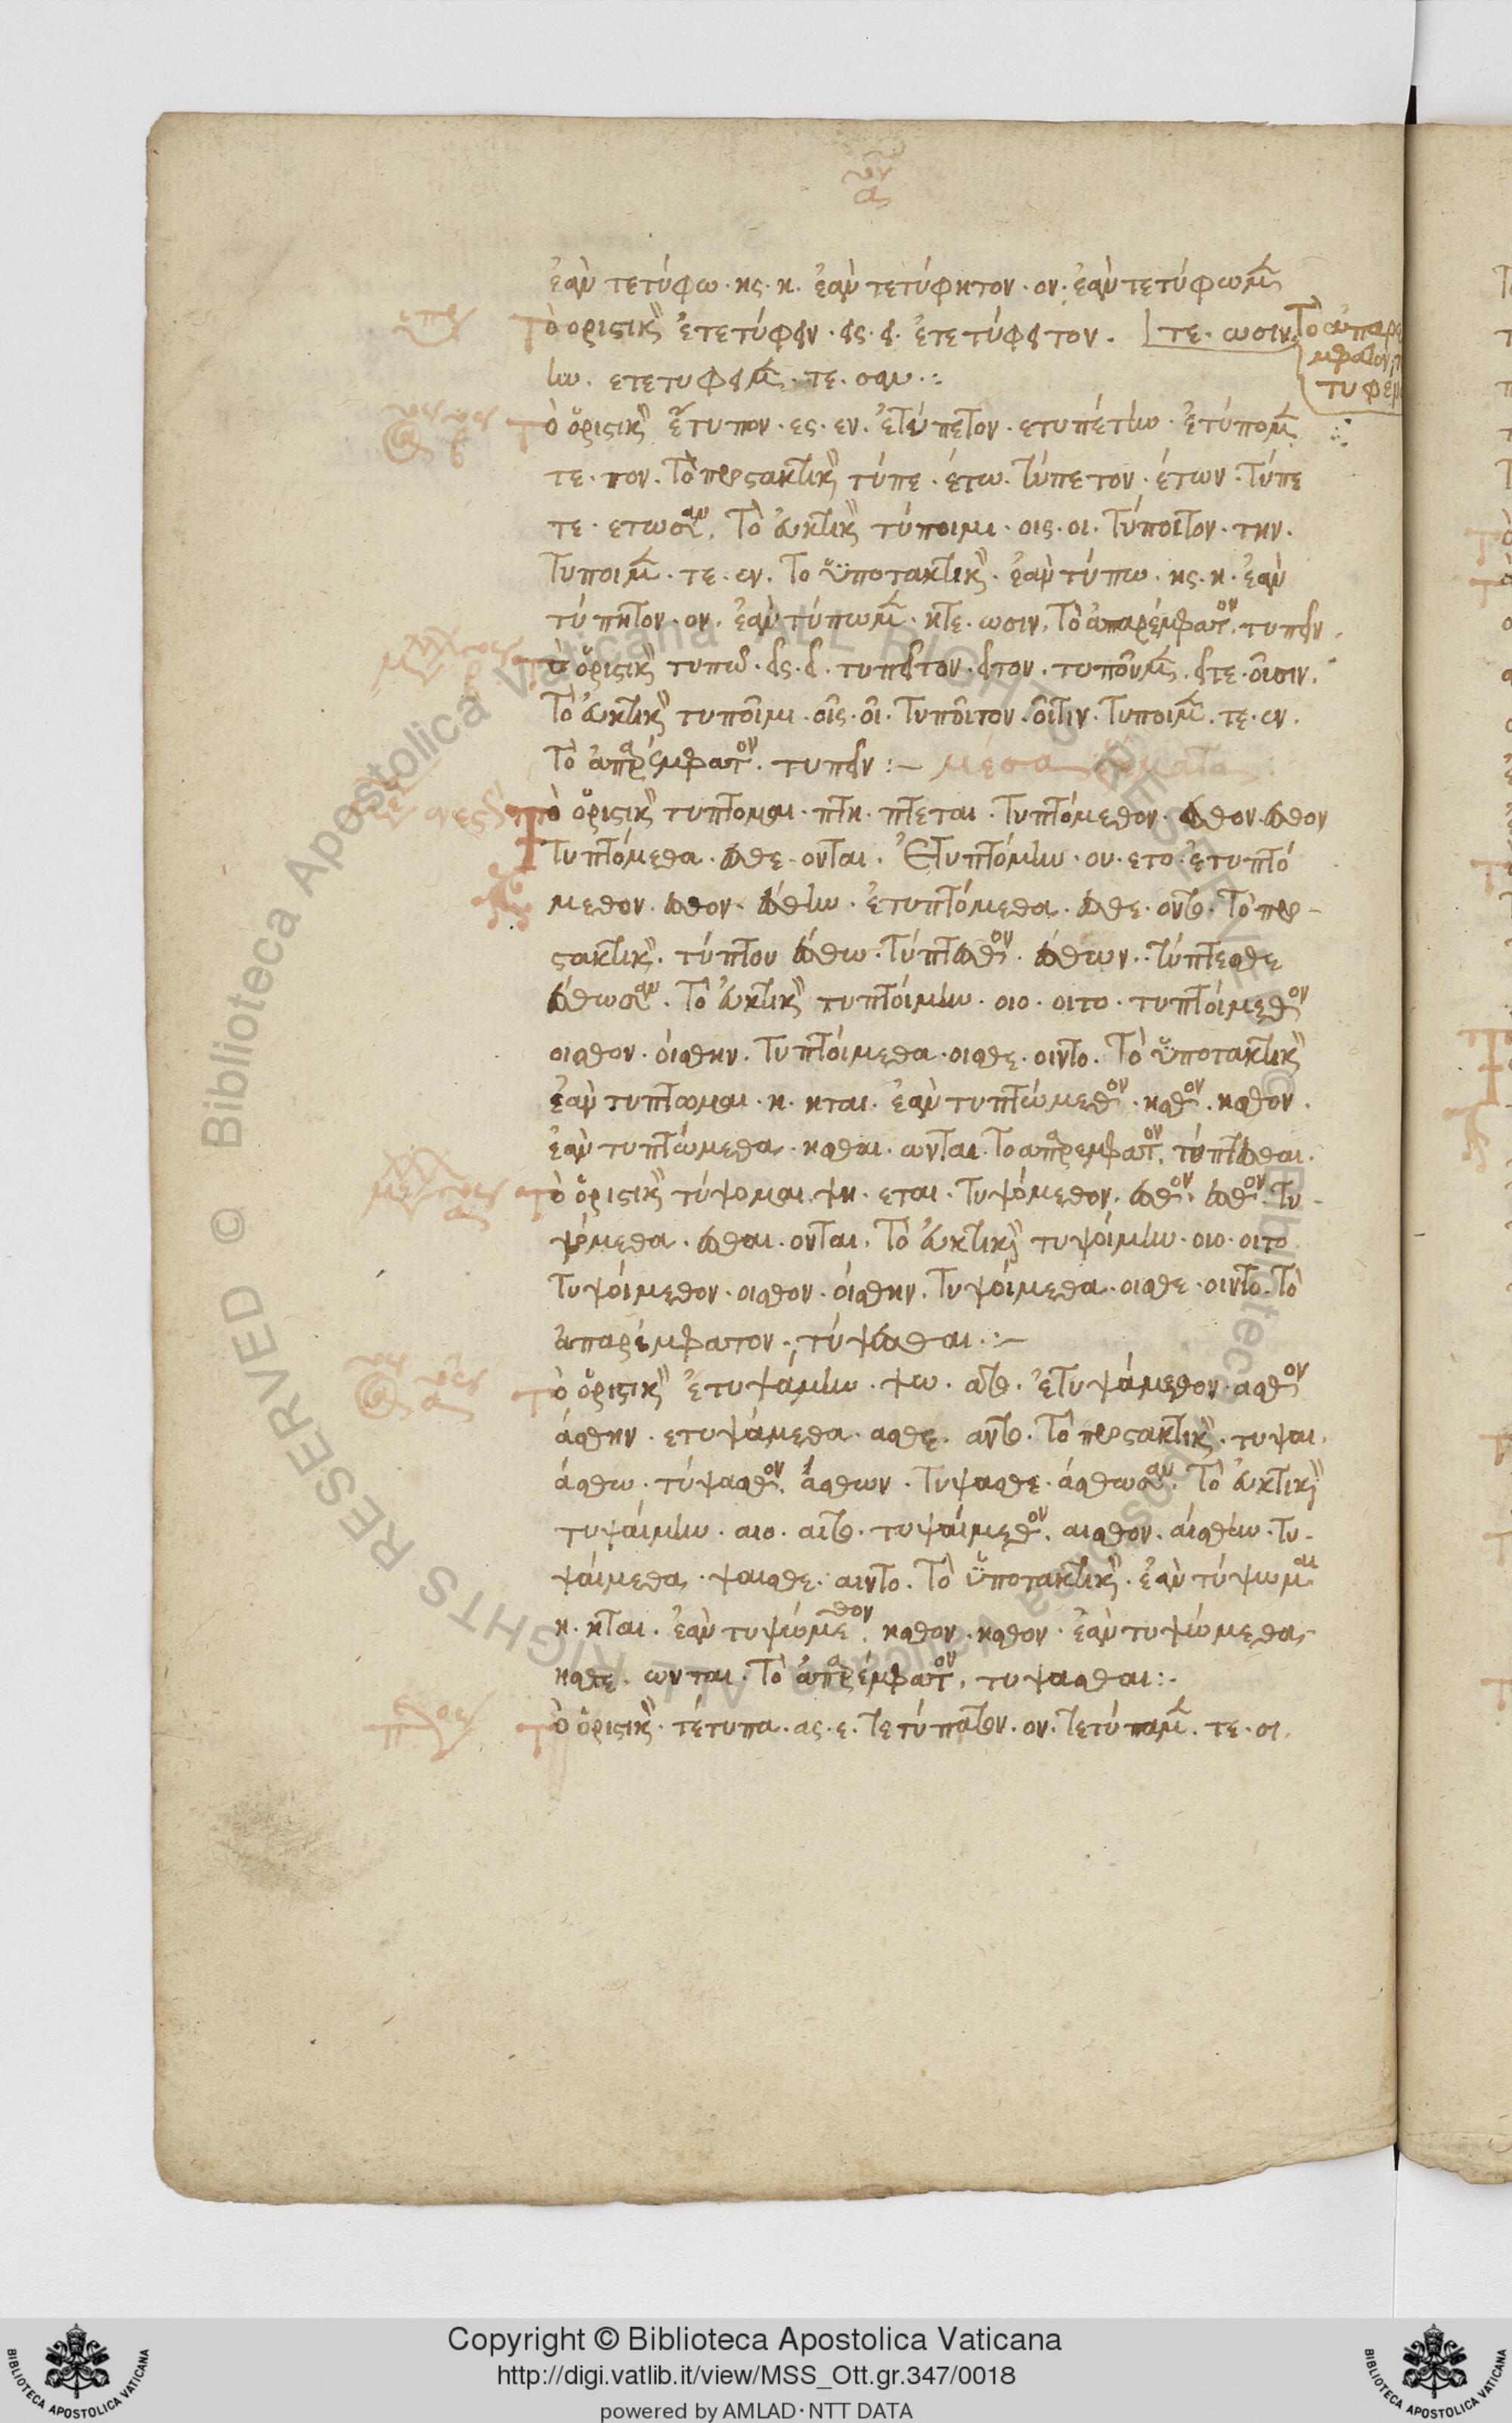 ἐὰν τετύφω· ης· η. ἐὰν τετύφητον· ον· ἐὰν τετύφωμ
Τὸ ὁριστικ ἐτετύφειν· εις· ει· ἐτετύφειτον. τε· ωσιν. Τὸ ἀπαρε
μφατον
την. ετετυφειμ· τε· σαν·:
τυφέν
Τὸ ὁριστικ ἔτυπον· ες· εν. ἐτύπετον· ετυπέτην· ἐτύπομ
τε· πον. Τὸ προστακτικ τύπε· έτω. τύπετον· έτων· τύπε
τε· ετωσαν. Τὸ εὐκτικ τύποιμι· οις· οι. τύποιτον· την.
Τυποιμ· τε· εν. Το ὑποτακτικ· ἐὰν τύπω· ης· η· ἐὰν
τύπητον· ον. ἐὰν τύπωμ· ητε· ωσιν. Τὸ ἀπαρέμφατον. τυπειν.
Τὸ ὁριστικ τυπῶ· εις· ει· τυπειτον· ειτον· τυποῦμ. ειτε· οῦσιν.
Τὸ εὐκτικ τυποῖμι· οῖς· οῖ. Τυποῖτον. οῖτην· Τυποιμ. τε· εν.
Τὸ ἀπαρέμφατον. τυπειν:— μέσα ῥήματα:
Τὸ ὁριστικ τυπτομαι· πτη· πτεται· Τυπτόμεθον· εσθον· εσθον
Τυπτόμεθα· εσθε· ονται. Ἐτυπτόμην· ου· ετο· ἐτυπτό
μεθον· εσθον· έσθην· ἐτυπτόμεθα· εσθε· οντο. Τὸ προ-
στακτικ. τύπτου έσθω· Τύπτεσθον· έσθων. τύπτεσθε
έσθωσαν. Τὸ εὐκτικ τυπτοίμην· οιο· οιτο· τυπτοίμεθον
οισθον· οίσθην. Τυπτοίμεθα· οισθε· οιντο. Τὸ ὑποτακτικ
ἐὰν τυπτωμαι· η· ηται· ἐὰν τυπτώμεθον· ησθον. ησθον.
ἐὰν τυπτώμεθα· ησθαι· ωνται. Το απαρεμφατον. τύπτεσθαι.
Τὸ ὁριστικ τύψομαι. ψη· εται· Τυψόμεθον. εσθον. εσθον. Τυ-
ψόμεθα· εσθαι· ονται. Τὸ εὐκτικ τυψοίμην· οιο· οιτο
Τυψοίμεθον· οισθον· οίσθην. Τυψοίμεθα· οισθε· οιντο. Τὸ
ἀπαρέμφατον· τύψεσθαι·:—
Τὸ ὁριστικ ἐτυψάμην· ψω· ατο· ἐτυψάμεθον· ασθον
άσθην· ετυψάμεθα· ασθε· αντο. Τὸ προστακτικ· τυψαι.
άσθω· τύψασθον. άσθων· Τυψασθε· άσθωσαν. Τὸ εὐκτικ
τυψαίμην· αιο· αιτο· τυψαίμεθον. αισθον. αίσθην· Τυ-
ψαίμεθα· ψαισθε· αιντο. Τὸ ὑποτακτικ· ἐὰν τύψωμαι
η· ηται. ἐὰν τυψώμεθον. ησθον· ησθον· ἐὰν τυψώμεθα
ησθε· ωνται· Τὸ ἀπαρέμφατον. τυψασθαι:·
Τὸ ὁριστικ· τέτυπα· ας· ε. Τετύπατον· ον. Τετύπαμ. τε· σι.
Copyright © Biblioteca Apostolica Vaticana
http://digi.vatlib.it/view/MSS_Ott.gr.347/0018
powered by AMLAD·NTT DATA